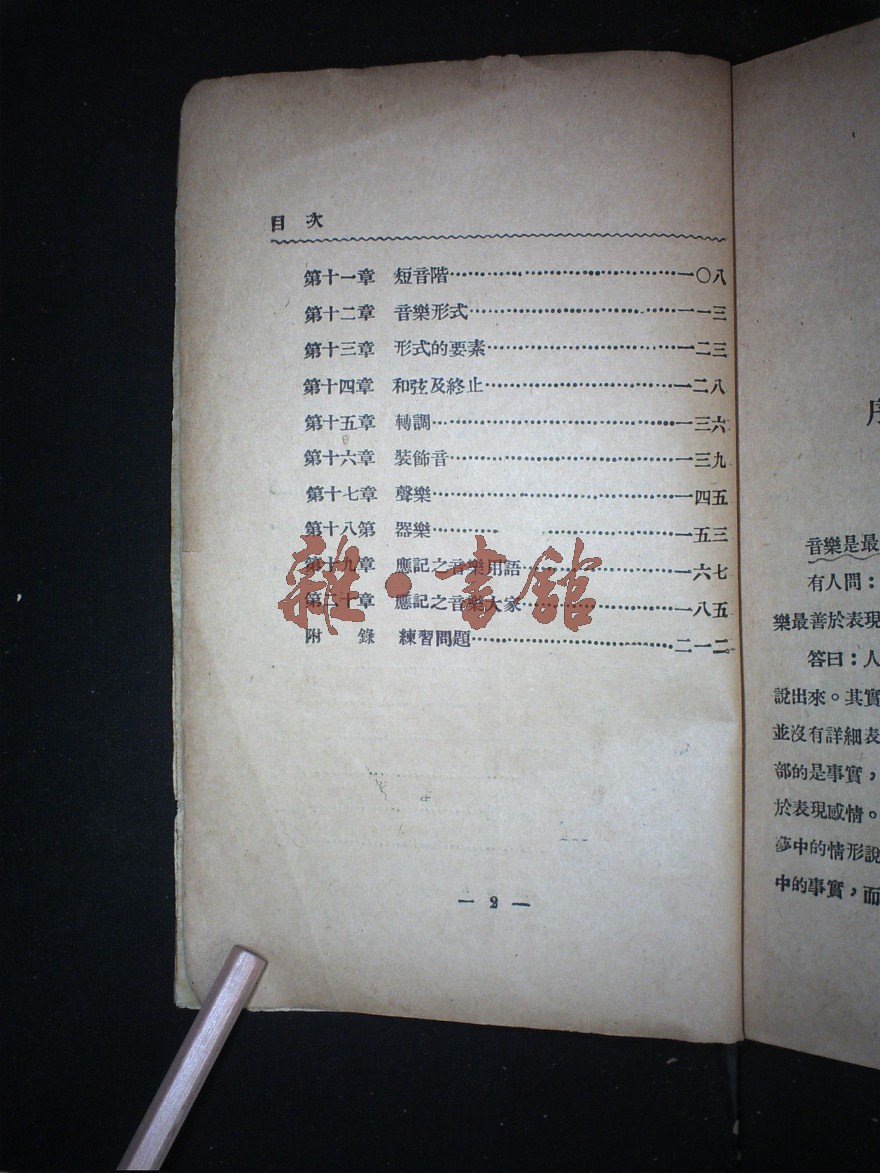 目次
第十一章 短音階……一〇八
第十二章 音樂形式……一一三
第十三章 形式的要素……一二三
第十四章 和弦及終止……一二八
第十五章 轉調……一三六
第十六章 裝飾音……一三九
第十七章 聲樂……一四五
第十八第 器樂……一五三
第十九章 應記之音樂用語……一六七
第二十章 應記之音樂大家……一八五
附錄 練習問題……二一二
— 2 —
雜·書館
序
音樂是最
有人問：
樂最善於表現
答曰：人
說出來。其實
並沒有詳細表
部的是事實，
於表現感情。
夢中的情形說
中的事實，而